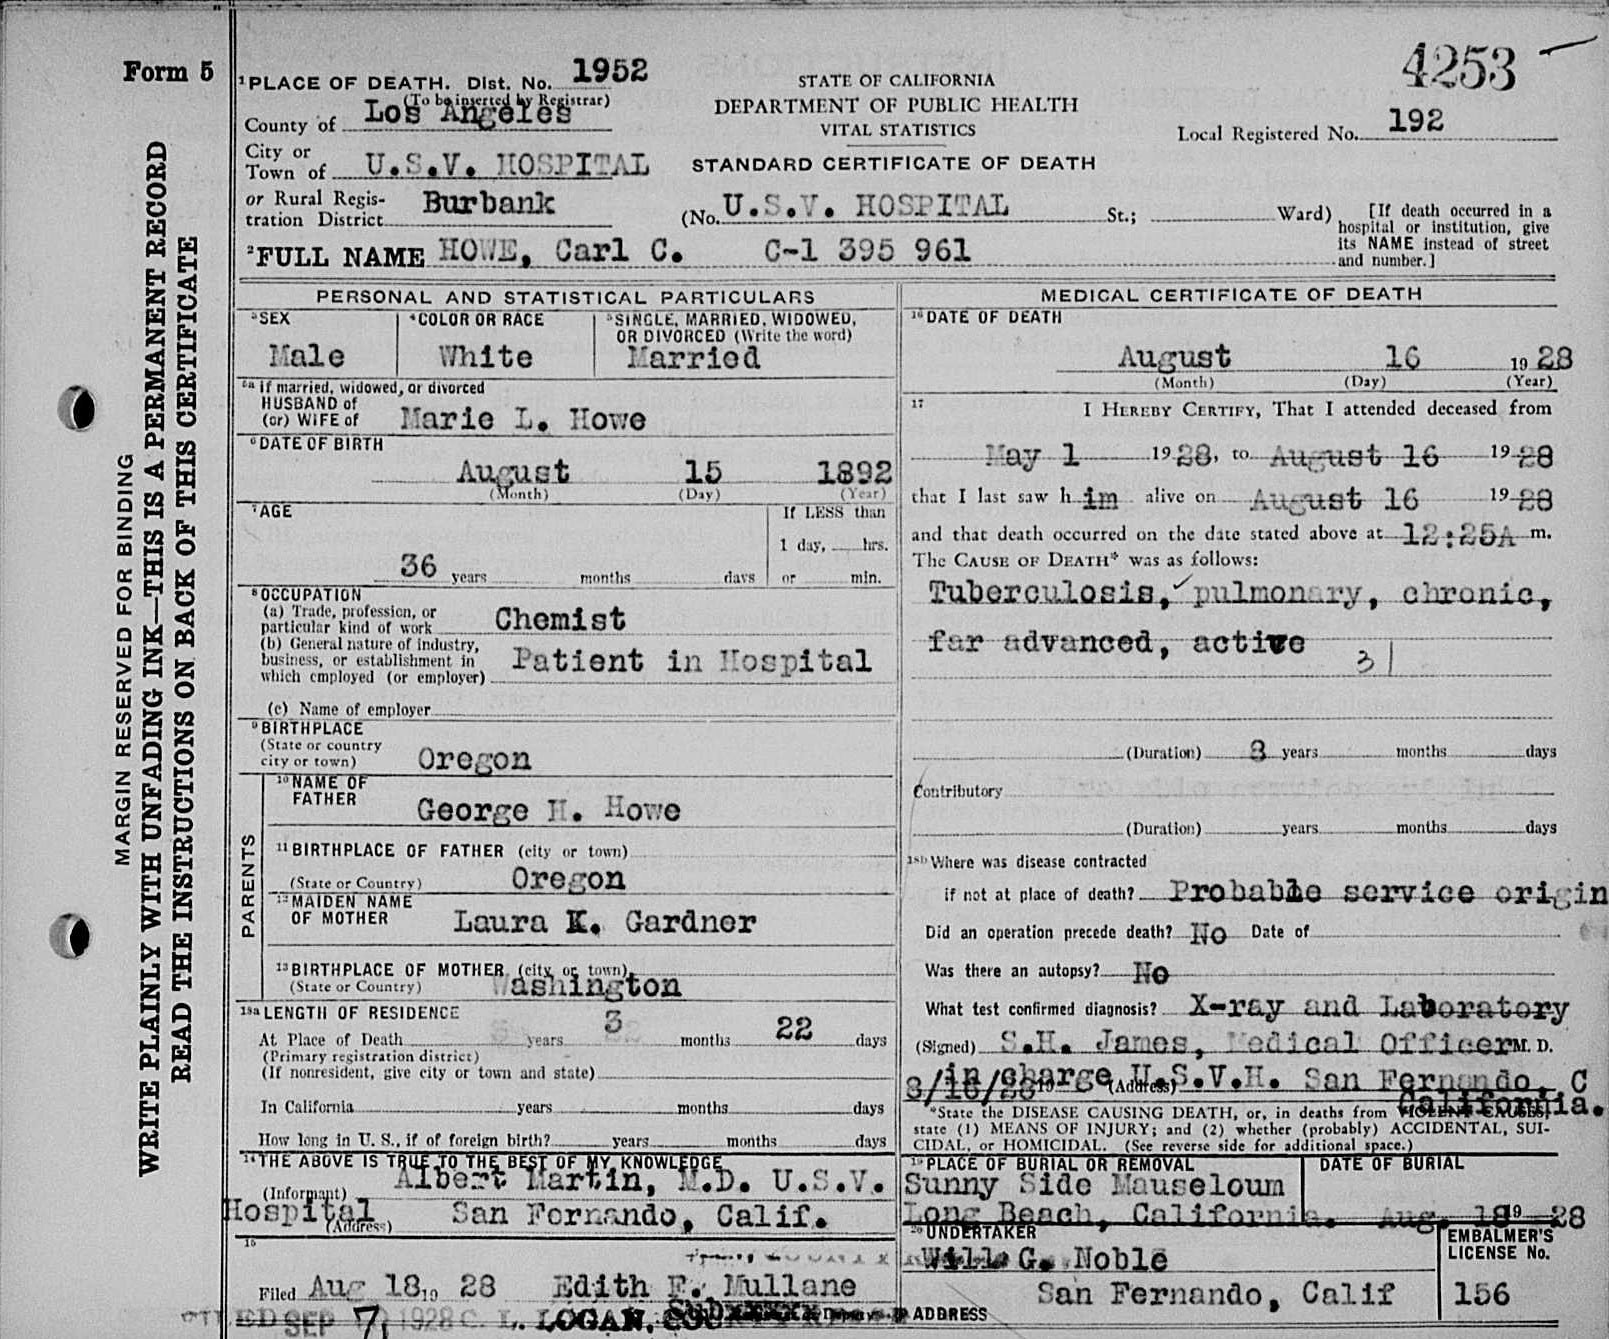 Form 5
MARGIN RESERVED FOR BINDING
WRITE PLAINLY WITH UNFADING INK—THIS IS A PERMANENT RECORD
READ THE INSTRUCTIONS ON BACK OF THIS CERTIFICATE
4253
1 PLACE OF DEATH. Dist. No. 1952
(To be inserted by Registrar)
County of Los Angeles
City or
Town of U.S.V. HOSPITAL
or Rural Regis-
tration District Burbank
STATE OF CALIFORNIA
DEPARTMENT OF PUBLIC HEALTH
VITAL STATISTICS
STANDARD CERTIFICATE OF DEATH
Local Registered No. 192
(No. U.S.V. HOSPITAL St.; Ward)
[If death occurred in a
hospital or institution, give
its NAME instead of street
and number.]
2 FULL NAME HOWE, Carl C. C-1 395 961
PERSONAL AND STATISTICAL PARTICULARS
3 SEX
Male
4 COLOR OR RACE
White
5 SINGLE, MARRIED, WIDOWED,
OR DIVORCED (Write the word)
Married
5a If married, widowed, or divorced
HUSBAND of
(or) WIFE of Marie L. Howe
6 DATE OF BIRTH
August 15 1892
(Month) (Day) (Year)
7 AGE
36 years months days
If LESS than
1 day, hrs.
or min.
8 OCCUPATION
(a) Trade, profession, or
particular kind of work Chemist
(b) General nature of industry,
business, or establishment in
which employed (or employer) Patient in Hospital
(c) Name of employer
9 BIRTHPLACE
(State or country
city or town) Oregon
PARENTS
10 NAME OF
FATHER
George H. Howe
11 BIRTHPLACE OF FATHER (city or town)
(State or Country) Oregon
12 MAIDEN NAME
OF MOTHER Laura K. Gardner
13 BIRTHPLACE OF MOTHER (city or town)
(State or Country) Washington
18a LENGTH OF RESIDENCE
At Place of Death years 3 months 22 days
(Primary registration district)
(If nonresident, give city or town and state)
In California years months days
How long in U. S., if of foreign birth? years months days
14 THE ABOVE IS TRUE TO THE BEST OF MY KNOWLEDGE
(Informant) Albert Martin, M.D. U.S.V.
Hospital (Address) San Fernando, Calif.
15
Filed Aug 18 19 28 Edith F. Mullane
SEP 7 1928 C. L. LOGAN,
MEDICAL CERTIFICATE OF DEATH
16 DATE OF DEATH
August 16 19 28
(Month) (Day) (Year)
17 I HEREBY CERTIFY, That I attended deceased from
May 1 19 28, to August 16 19 28
that I last saw him alive on August 16 19 28
and that death occurred on the date stated above at 12:25A m.
The CAUSE OF DEATH* was as follows:
Tuberculosis, pulmonary, chronic,
far advanced, active
31
(Duration) 8 years months days
Contributory
(Duration) years months days
18b Where was disease contracted
if not at place of death? Probable service origin
Did an operation precede death? No Date of
Was there an autopsy? No
What test confirmed diagnosis? X-ray and Laboratory
(Signed) S.H. James, Medical Officer M. D.
in charge
8/16/28 19 (Address) U.S.V.H. San Fernando, C
California.
*State the DISEASE CAUSING DEATH, or, in deaths from VIOLENT CAUSES,
state (1) MEANS OF INJURY; and (2) whether (probably) ACCIDENTAL, SUI-
CIDAL, or HOMICIDAL. (See reverse side for additional space.)
19 PLACE OF BURIAL OR REMOVAL
Sunny Side Mauseloum
Long Beach, California.
DATE OF BURIAL
Aug. 18 19 28
20 UNDERTAKER
Will G. Noble
San Fernando, Calif
ADDRESS
EMBALMER'S
LICENSE No.
156